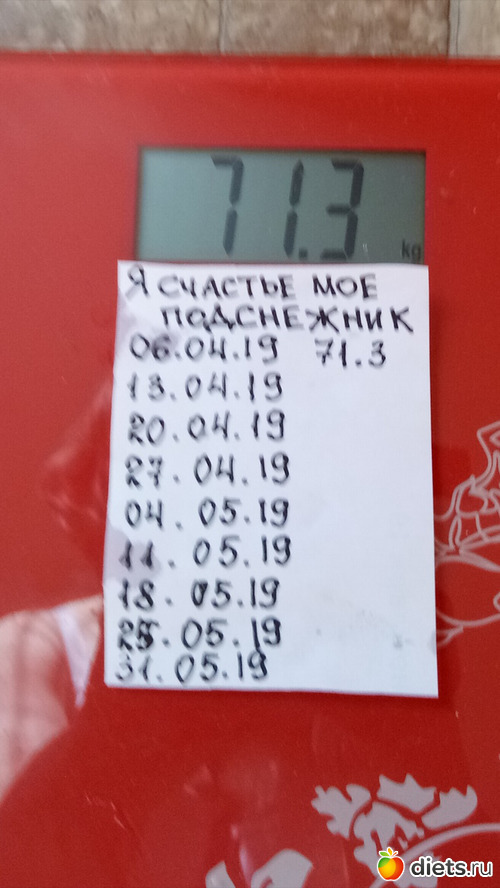 71.3
kg
Я СЧАСТЬЕ МОЕ
ПОДСНЕЖНИК
06.04.19 71.3
13.04.19
20.04.19
27.04.19
04.05.19
11.05.19
18.05.19
25.05.19
31.05.19
diets.ru